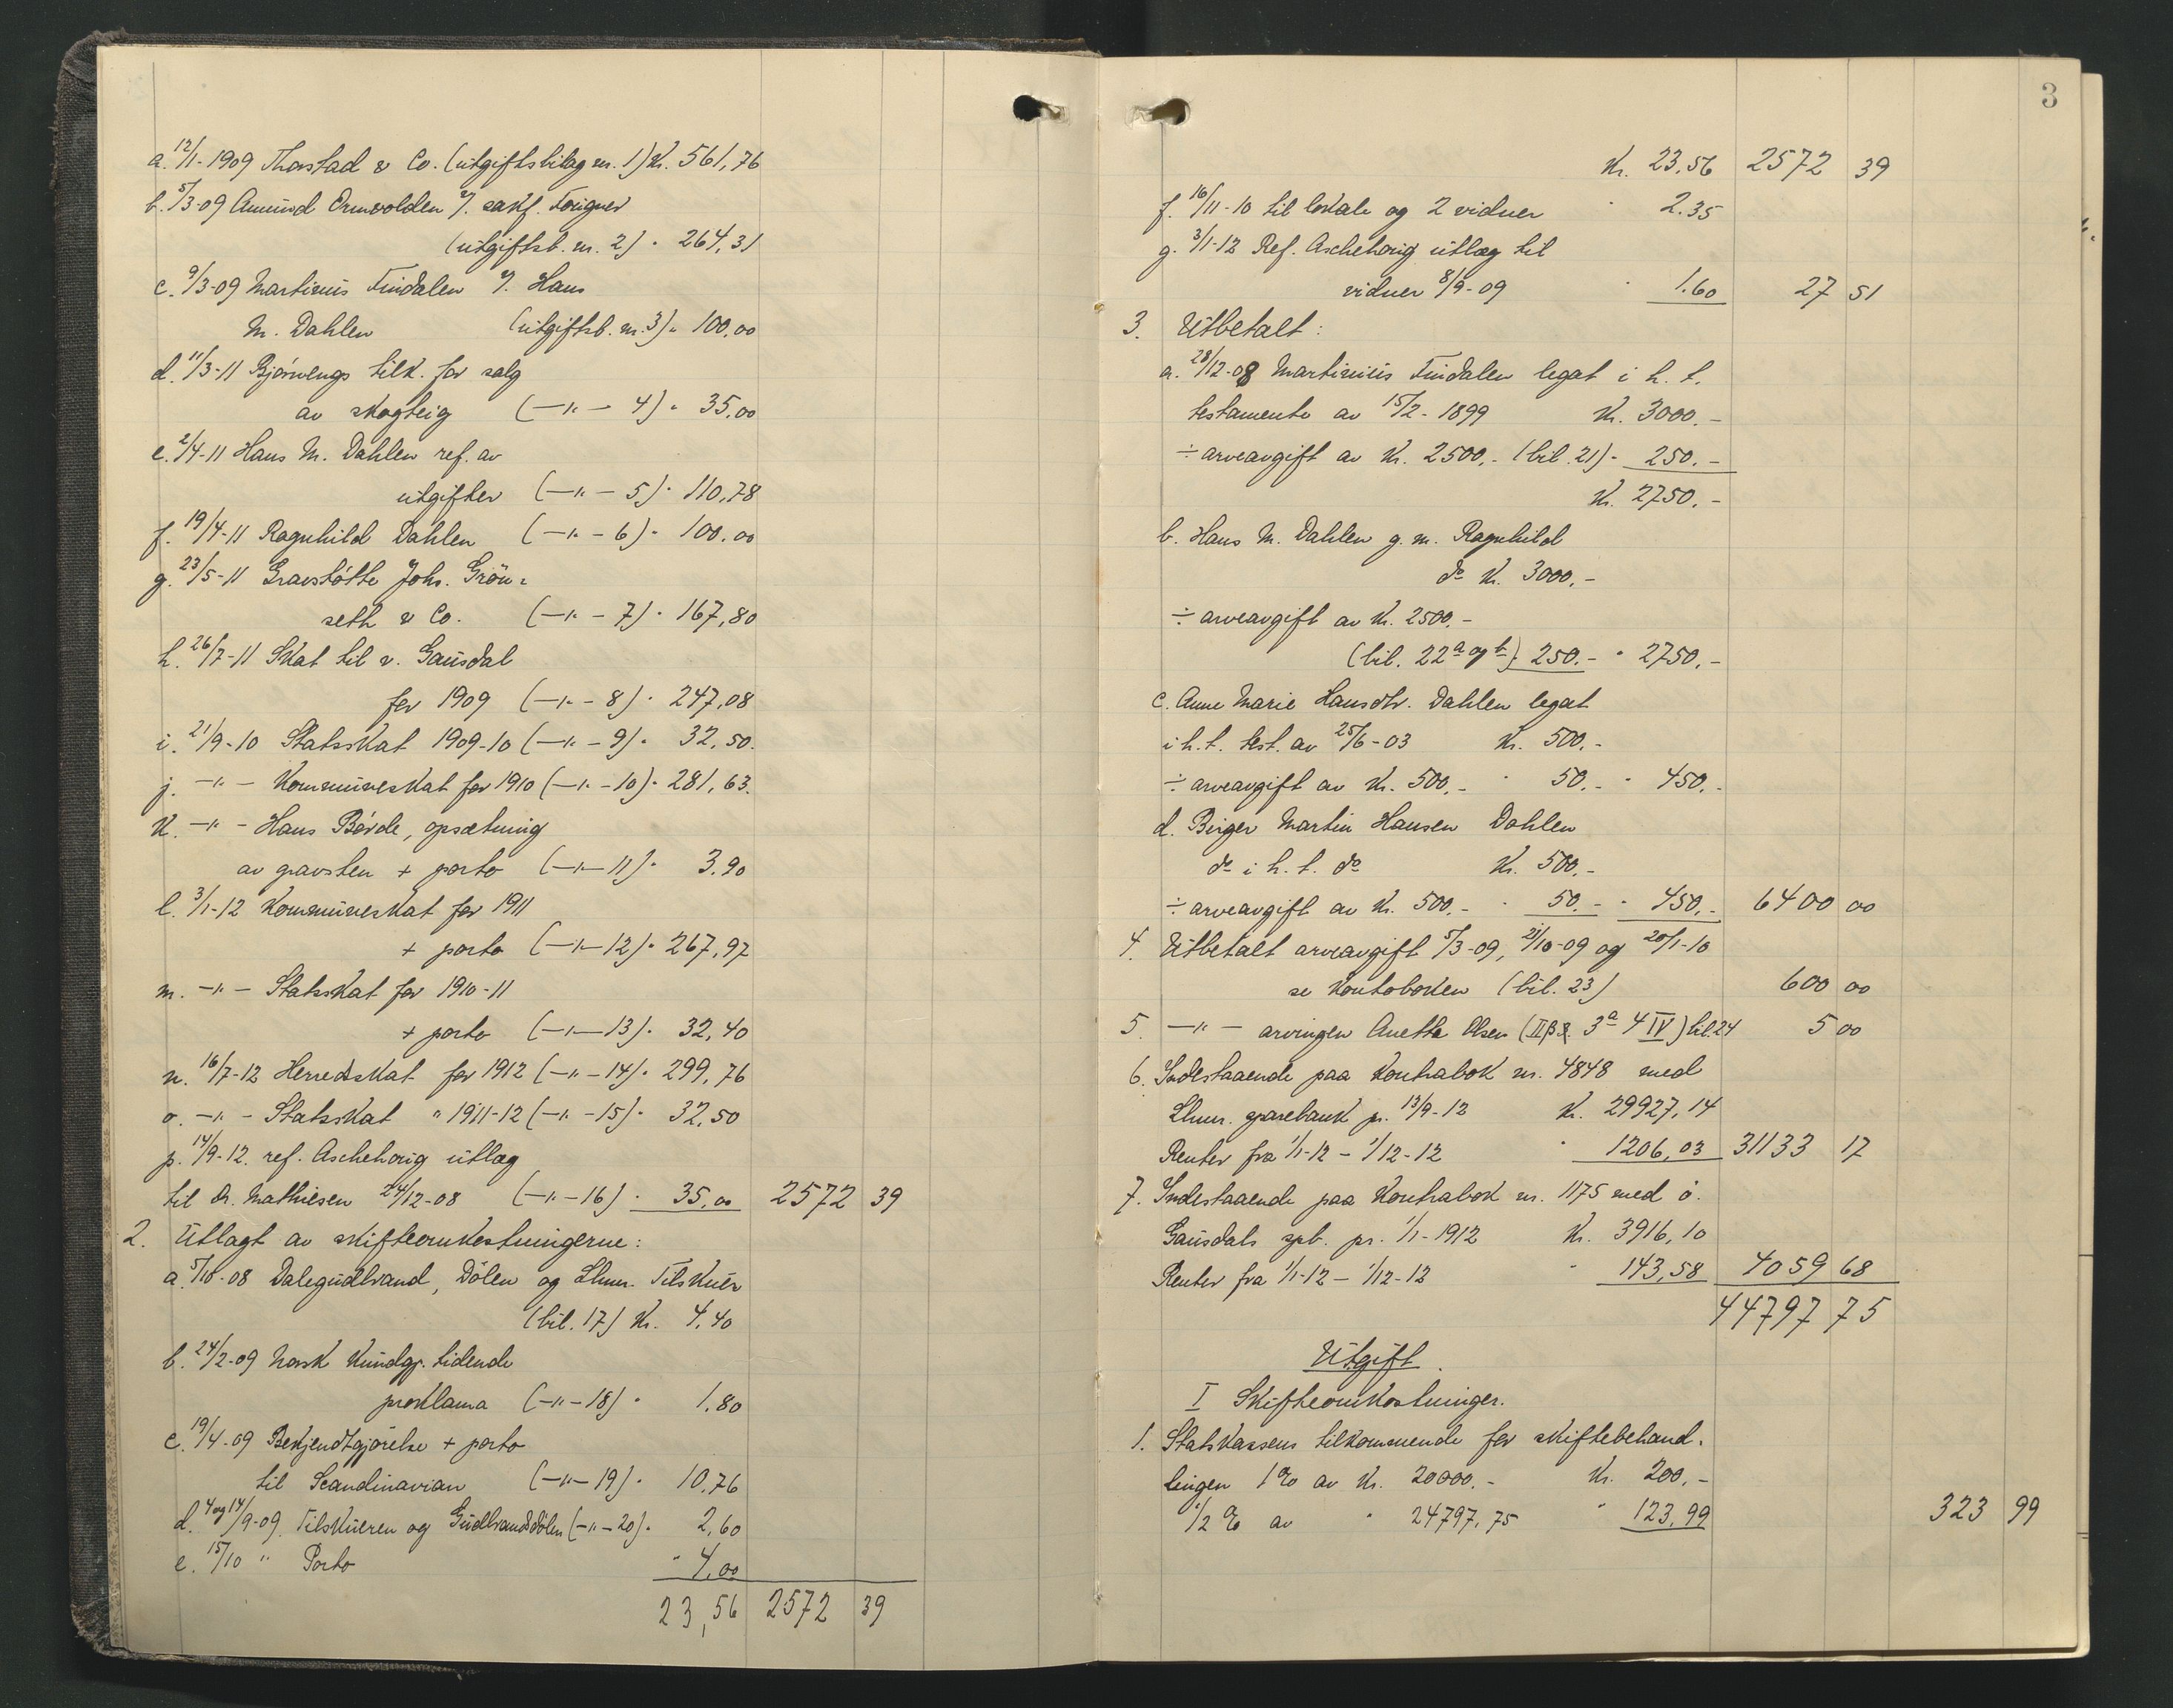 a. 12/1-1909 Thorstad & Co. (utgiftsbilag nr. 1) Kr. 561,76
b. 5/3-09 Amund Ormvolden v/. sakf.
(utgiftsb. nr. 2) " 264,31
c. 9/3-09 Martinius Findalen v/. Hans
M. Dahlen (utgiftsb. nr. 3) " 100,00
d. 11/3-11 Bjørnengs tilk. for salg
av skogteig (—"— 4) " 35,00
e. 2/4-11 Hans M. Dahlen ref. av
utgifter (—"— 5) " 110,78
f. 19/4-11 Ragnhild Dahlen (—"— 6) " 100,00
g. 23/5-11 Gravstøtte Johs. Grøn=
seth & Co. (—"— 7) " 167,80
h. 26/7-11 Skat til v. Gausdal
for 1909 (—"— 8) " 247,08
i. 21/9-10 Statsskat 1909-10 (—"— 9) " 32,50
j. —"— Kommuneskat for 1910 (—"— 10) " 281,63
k. —"— Hans Børde, opsætning
av gravsten + porto (—"— 11) " 3,90
l. 3/1-12 Kommuneskat for 1911
+ porto (—"— 12) " 267,97
m. —"— Statsskat for 1910-11
+ porto (—"— 13) " 32,40
n. 16/7-12 Herredsskat for 1912 (—"— 14) " 299,76
o. —"— Statsskat " 1911-12 (—"— 15) " 32,50
p. 14/9-12. ref. Aschehoug utlæg
til dr. Mathiesen 24/12-08 (—"— 16) " 35,00 2572 39
2. Utlagt av skifteomkostningerne:
a. 5/10-08 Dalegudbrand, Dølen og Lhmr. Tilskuer
(bil. 17) Kr. 4,40
b. 24/2-09 Norsk Kundgj. tidende
proklama (—"— 18) " 1,80
c. 19/4-09 Bekjendtgjørelse + porto
til Scandinavian (—"— 19) " 10,76
d. 4 og 14/9-09. Tilskueren og Gudbrandsdølen (—"— 20) " 2,60
e. 15/10 " Porto " 4,00
23,56 2572 39
3
Kr. 23,56 2572 39
f. 16/11-10 til lokale og 2 vidner " 2.35
g. 3/1-12 Ref. Aschehoug utlæg til
vidner 8/9-09 " 1.60 27 51
3. Utbetalt:
a. 28/12-08 Martinius Findalen legat i h. t.
testamente av 15/2-1899 Kr. 3000.-
÷ arveavgift av Kr. 2500,- (bil. 21) " 250.-
Kr. 2750.-
b. Hans M. Dahlen g. m. Ragnhild
do Kr. 3000.-
÷ arveavgift av Kr. 2500.-
(bil. 22 a og b) " 250.- " 2750.-
c. Anne Marie Hansdtr. Dahlen legat
i h. t. test. av 25/6-03 Kr. 500.-
÷ arveavgift av Kr. 500.- " 50.- " 450.-
d. Birger Martin Hansen Dahlen
do i h. t. do Kr. 500.-
÷ arveavgift av Kr. 500.- " 50.- " 450.- 6400 00
4. Utbetalt arveavgift 5/3-09, 21/10-09 og 20/1-10
se kontoboken (bil. 23) 600 00
5. —"— arvingen Anette Olsen 3a 4 IV) bil. 24 5 00
6. Indestaaende paa Kontrabok nr. 4848 med
Lhmr. sparebank pr. 13/9-12 Kr. 29927,14
Renter fra 1/1-12 - 1/12-12 " 1206,03 31133 17
7. Indestaaende paa Kontrabok nr. 1175 med ø.
Gausdals spb. pr. 1/1-1912 Kr. 3916,10
Renter fra 1/1-12 - 1/12-12 " 143,58 4059 68
44797 75
Utgift.
I Skifteomkostninger.
1. Statskassens tilkommende for skiftebehand.
lingen 1% av Kr. 20000.- Kr. 200,-
1/2 % av " 24797,75 " 123,99 323 99